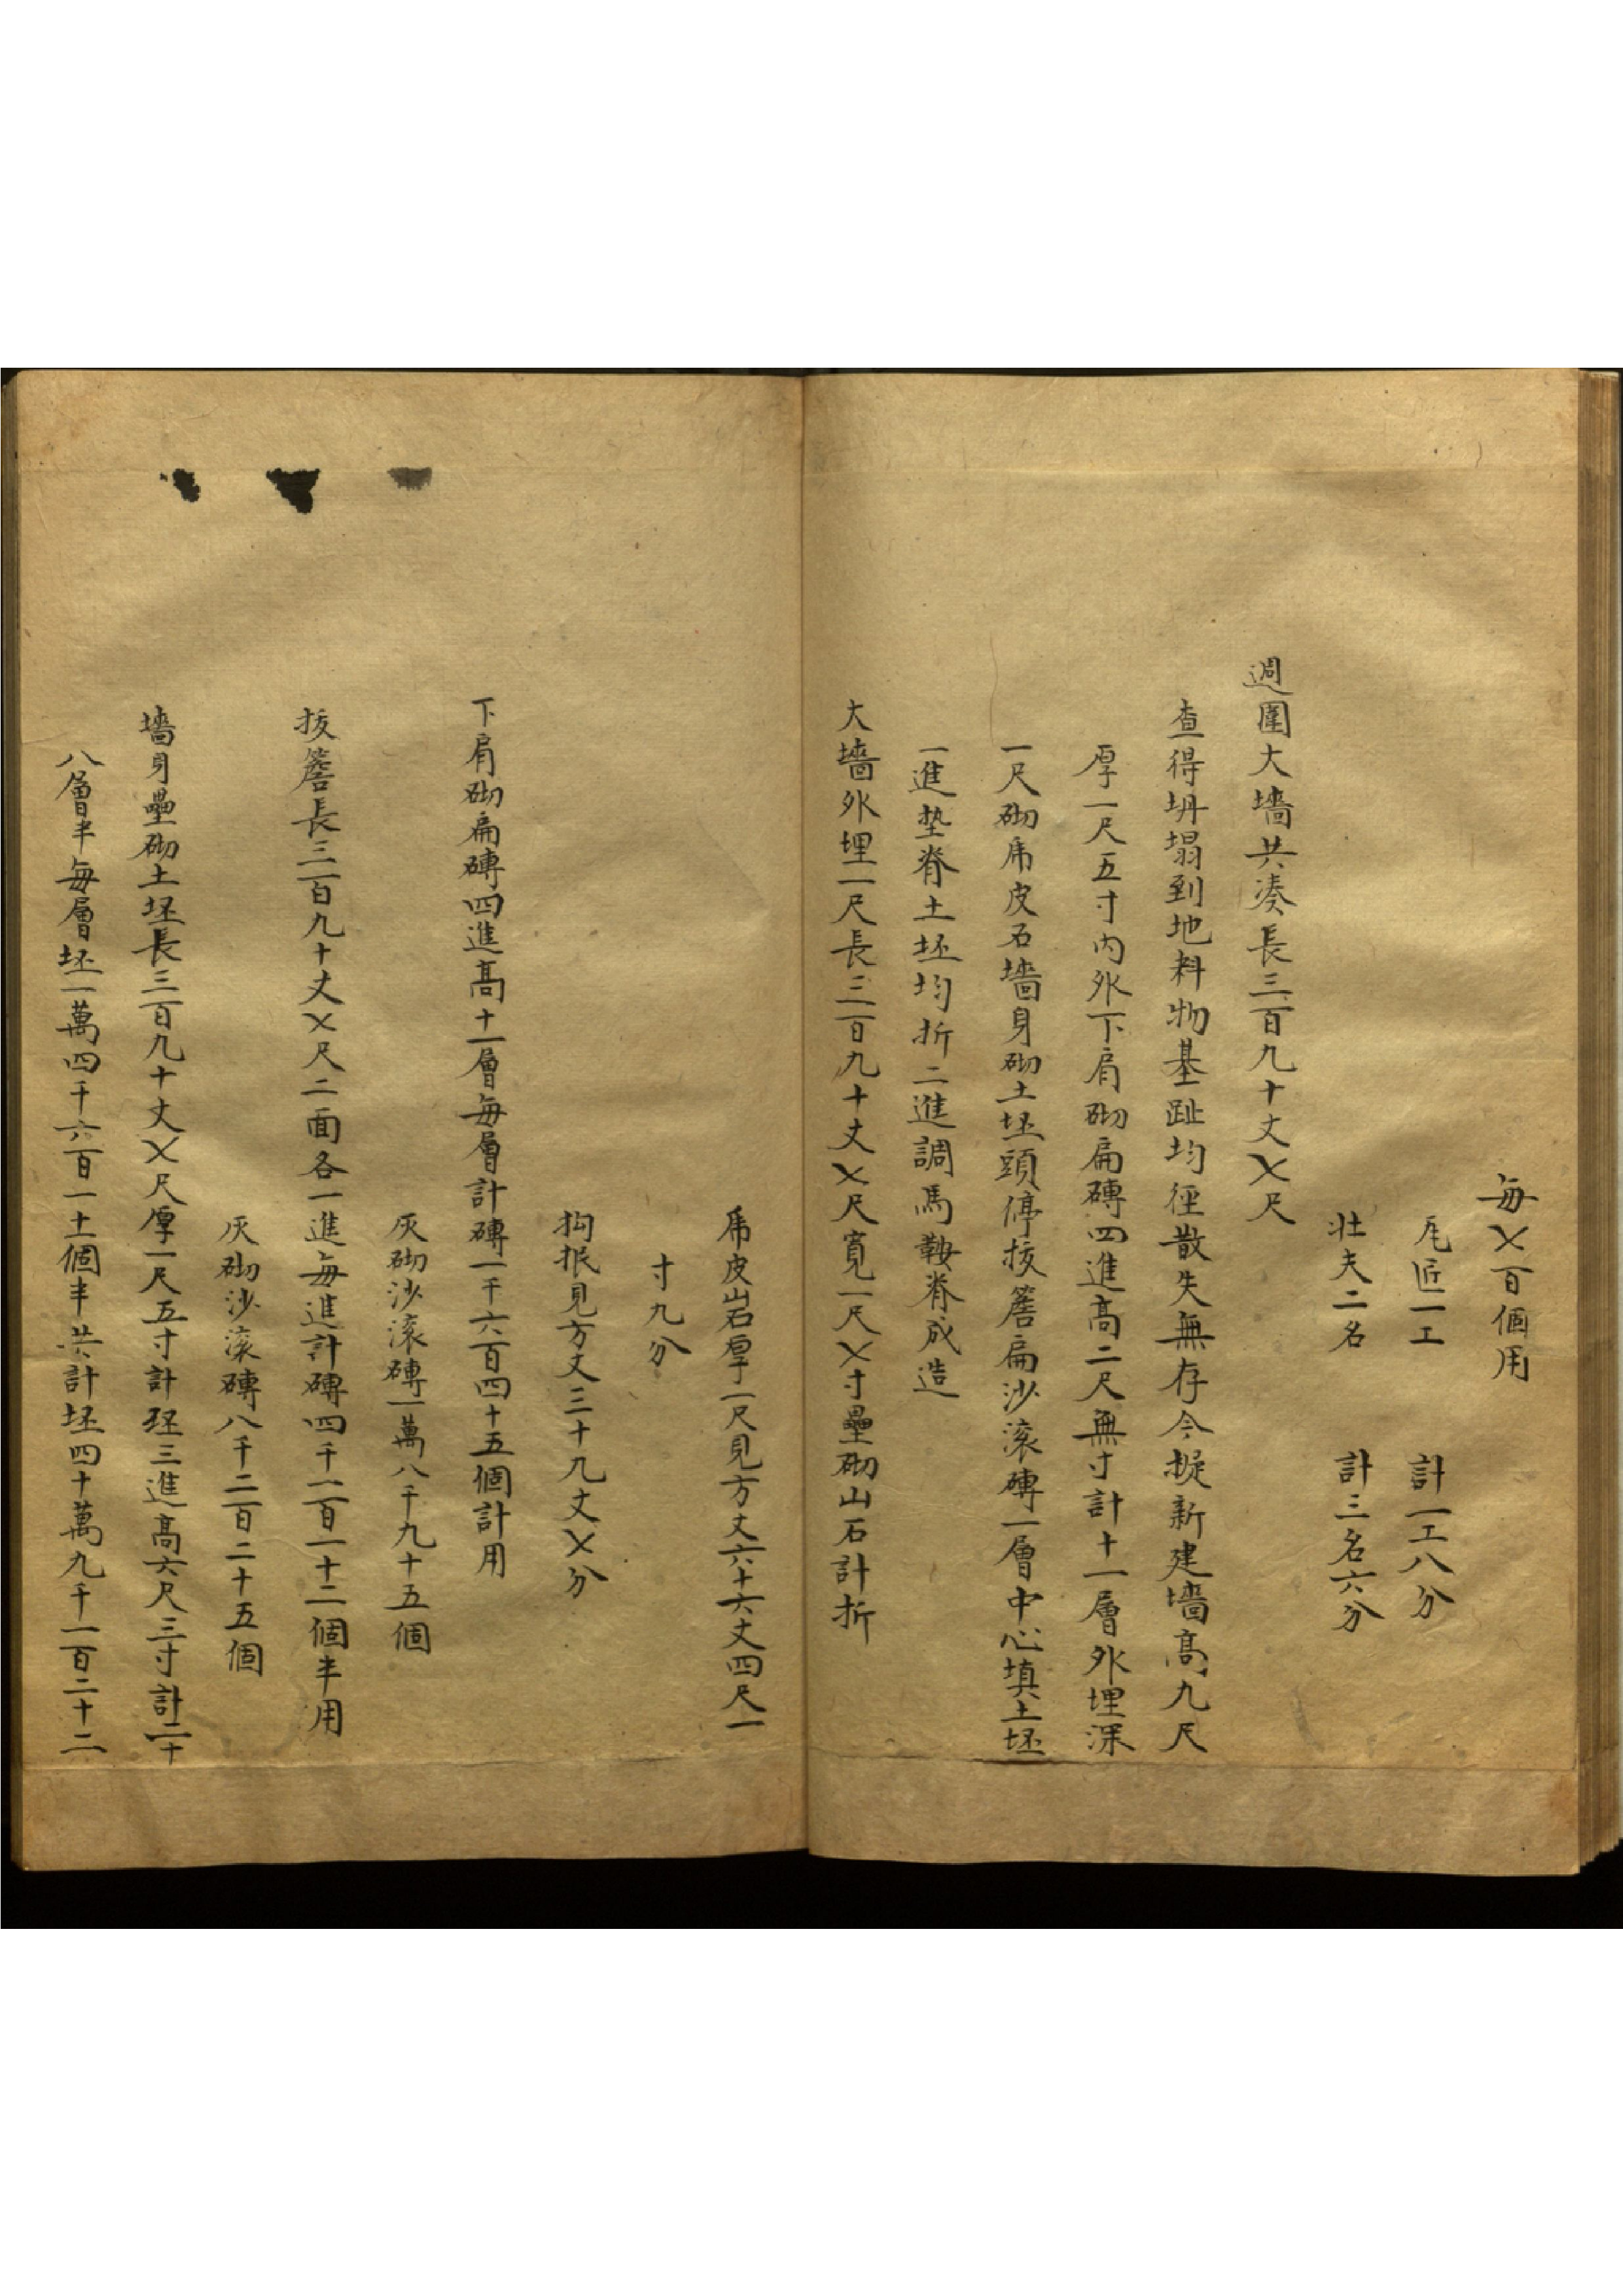 每〤百個用
瓦匠一工　計一工八分
壯夫二名　計三名六分
週圍大墻共湊長三百九十丈〤尺
查得坍塌到地料物基趾均徑散失無存今擬新建墻高九尺
厚一尺五寸內外下肩砌扁磚四進高二尺無寸計十一層外埋深
一尺砌乕皮石墻身砌土坯頭停拔簷扁沙滚磚一層中心填土坯
一進墊脊土坯均折二進調馬鞍脊成造
大墻外埋一尺長三百九十丈〤尺寬一尺〤寸壘砌山石計折
乕皮山石厚一尺見方丈六十六丈四尺一
寸九分
抅抿見方丈三十九丈〤分
下肩砌扁磚四進高十一層每層計磚一千六百四十五個計用
灰砌沙滚磚一萬八千九十五個
拔簷長三百九十丈〤尺二面各一進每進計磚四千一百一十二個半用
灰砌沙滚磚八千二百二十五個
墻身壘砌土坯長三百九十丈〤尺厚一尺五寸計坯三進高六尺三寸計二十
八層半每層坯一萬四千六百一十個半共計坯四十萬九千一百二十二